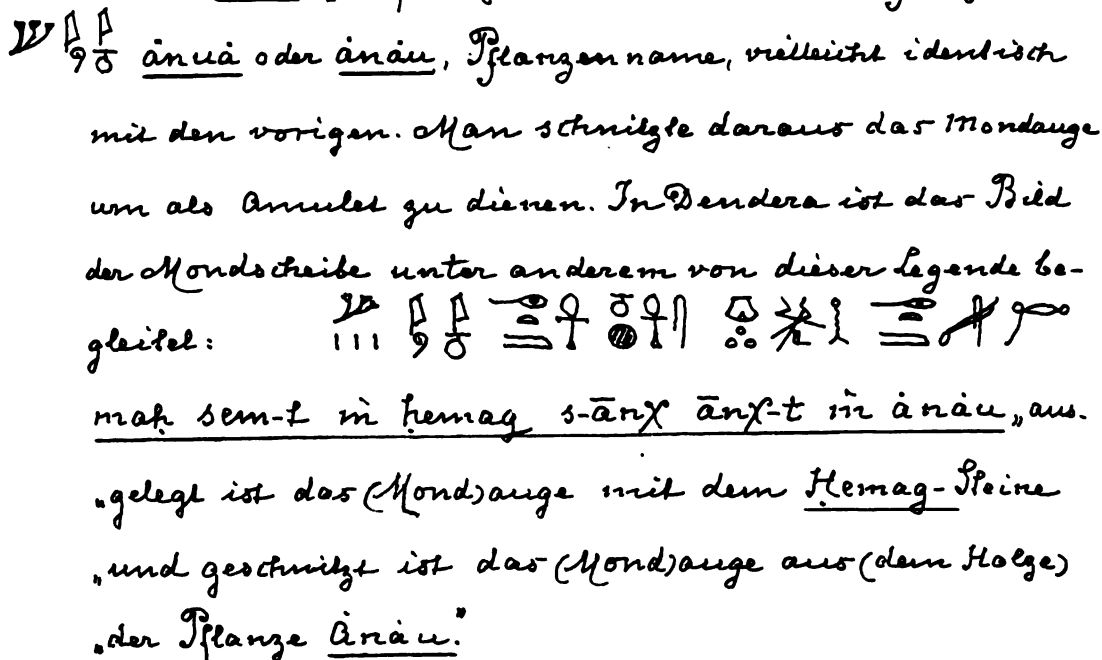 ȧnuȧ oder ȧnȧu, Pflanzenname, vielleicht identisch
mit den vorigen. Man schnitzte daraus das Mondauge
um als Amulet zu dienen. In Dendera ist das Bild
der Mondscheibe unter anderem von dieser Legende be-
gleitet:
maḥ sem-t m̀ ḥemag s-ānχ ānχ-t m̀ ȧnȧu „aus-
„gelegt ist das (Mond)auge mit dem Ḥemag-Steine
„und geschnitzt ist das (Mond)auge aus (dem Holze)
„der Pflanze Ȧnȧu.“